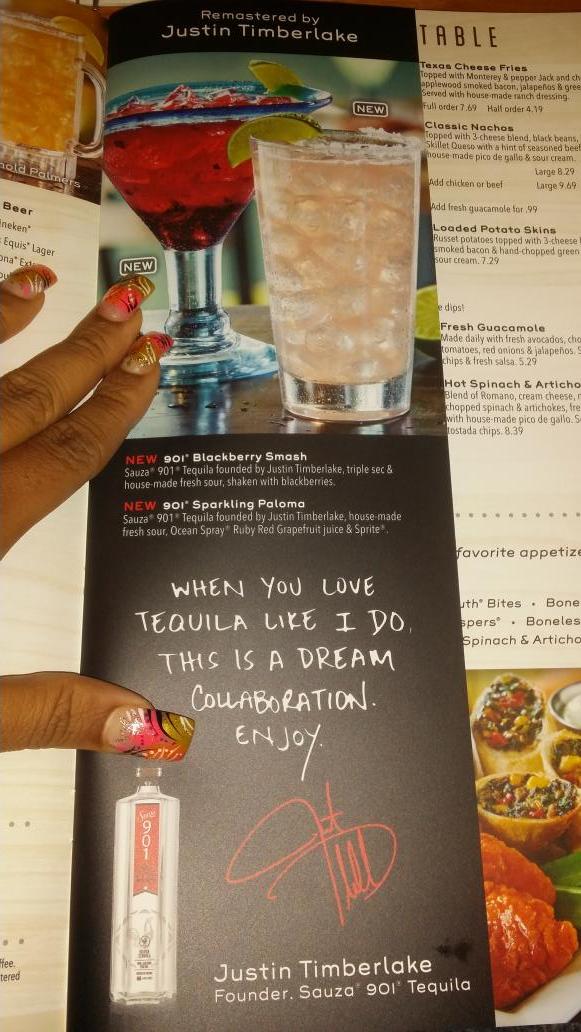 Remastered by
Justin Timberlake
NEW
NEW
NEW 901® Blackberry Smash
Sauza® 901® Tequila founded by Justin Timberlake, triple sec &
house-made fresh sour, shaken with blackberries.
NEW 901® Sparkling Paloma
Sauza® 901® Tequila founded by Justin Timberlake, house-made
fresh sour, Ocean Spray® Ruby Red Grapefruit juice & Sprite®.
WHEN YOU LOVE
TEQUILA LIKE I DO,
THIS IS A DREAM
COLLABORATION.
ENJOY.
Sauza
901
Justin Timberlake
Founder, Sauza® 901® Tequila
nold Palmers
Beer
ineken®
Equis® Lager
ona® Ext
ffee,
tered
TABLE
Texas Cheese Fries
Topped with Monterey & pepper Jack and ch
applewood smoked bacon, jalapeños & gree
Served with house-made ranch dressing.
Full order 7.69 Half order 4.19
Classic Nachos
Topped with 3-cheese blend, black beans,
Skillet Queso with a hint of seasoned beef
house-made pico de gallo & sour cream.
Large 8.29
Add chicken or beef Large 9.69
Add fresh guacamole for .99
Loaded Potato Skins
Russet potatoes topped with 3-cheese
smoked bacon & hand-chopped green
sour cream. 7.29
e dips!
Fresh Guacamole
Made daily with fresh avocados, cho
tomatoes, red onions & jalapeños. S
chips & fresh salsa. 5.29
Hot Spinach & Articho
Blend of Romano, cream cheese, r
chopped spinach & artichokes, fre
with house-made pico de gallo. S
tostada chips. 8.39
favorite appetize
uth® Bites • Bone
spers® • Boneles
Spinach & Articho